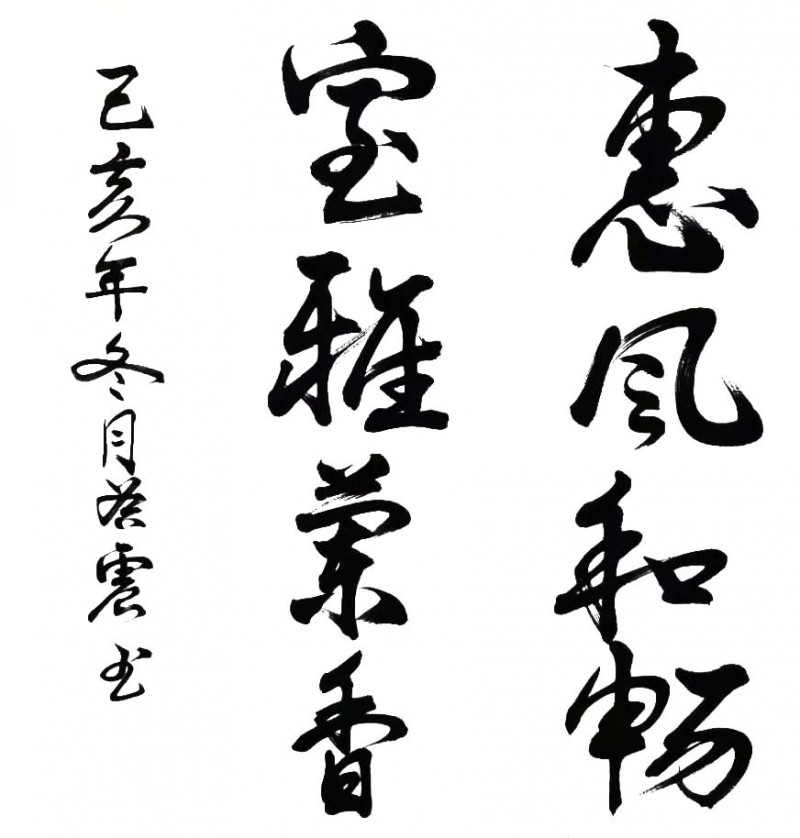 惠风和畅
室雅兰香
己亥年冬月癸震书